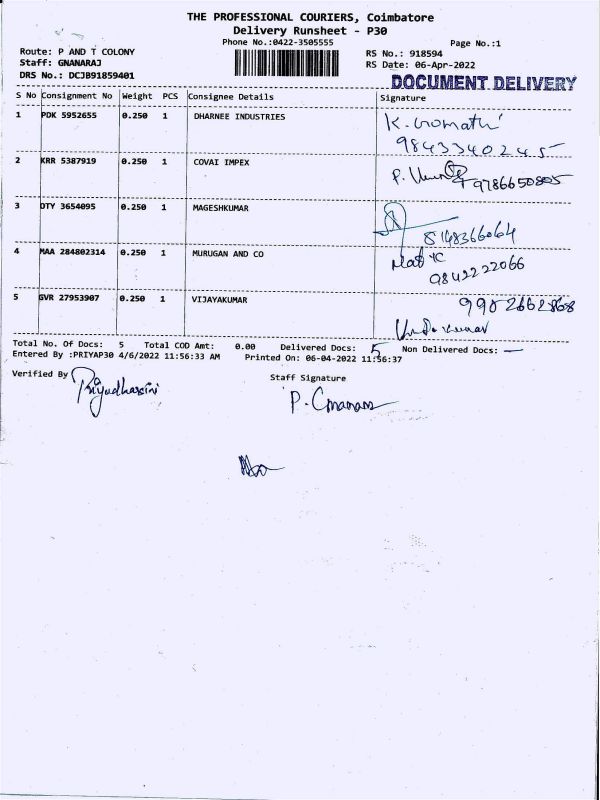 THE PROFESSIONAL COURIERS, Coimbatore
Delivery Runsheet - P30
Phone No.:0422-3505555
Page No.:1
Route: P AND T COLONY
RS No.: 918594
Staff: GNANARAJ
RS Date: 06-Apr-2022
DRS No.: DCJB91859401
DOCUMENT DELIVERY
S No Consignment No Weight PCS Consignee Details Signature
1 PDK 5952655 0.250 1 DHARNEE INDUSTRIES K. Gomathi
9843340245
2 KRR 5387919 0.250 1 COVAI IMPEX P.
9786650805
3 DTY 3654095 0.250 1 MAGESHKUMAR
8148366064
4 MAA 284802314 0.250 1 MURUGAN AND CO
9842222066
5 GVR 27953907 0.250 1 VIJAYAKUMAR 9952662868
Total No. Of Docs: 5 Total COD Amt: 0.00 Delivered Docs: 5 Non Delivered Docs: —
Entered By :PRIYAP30 4/6/2022 11:56:33 AM Printed On: 06-04-2022 11:56:37
Verified By Priyadharsini
Staff Signature
P. Gnanaraj